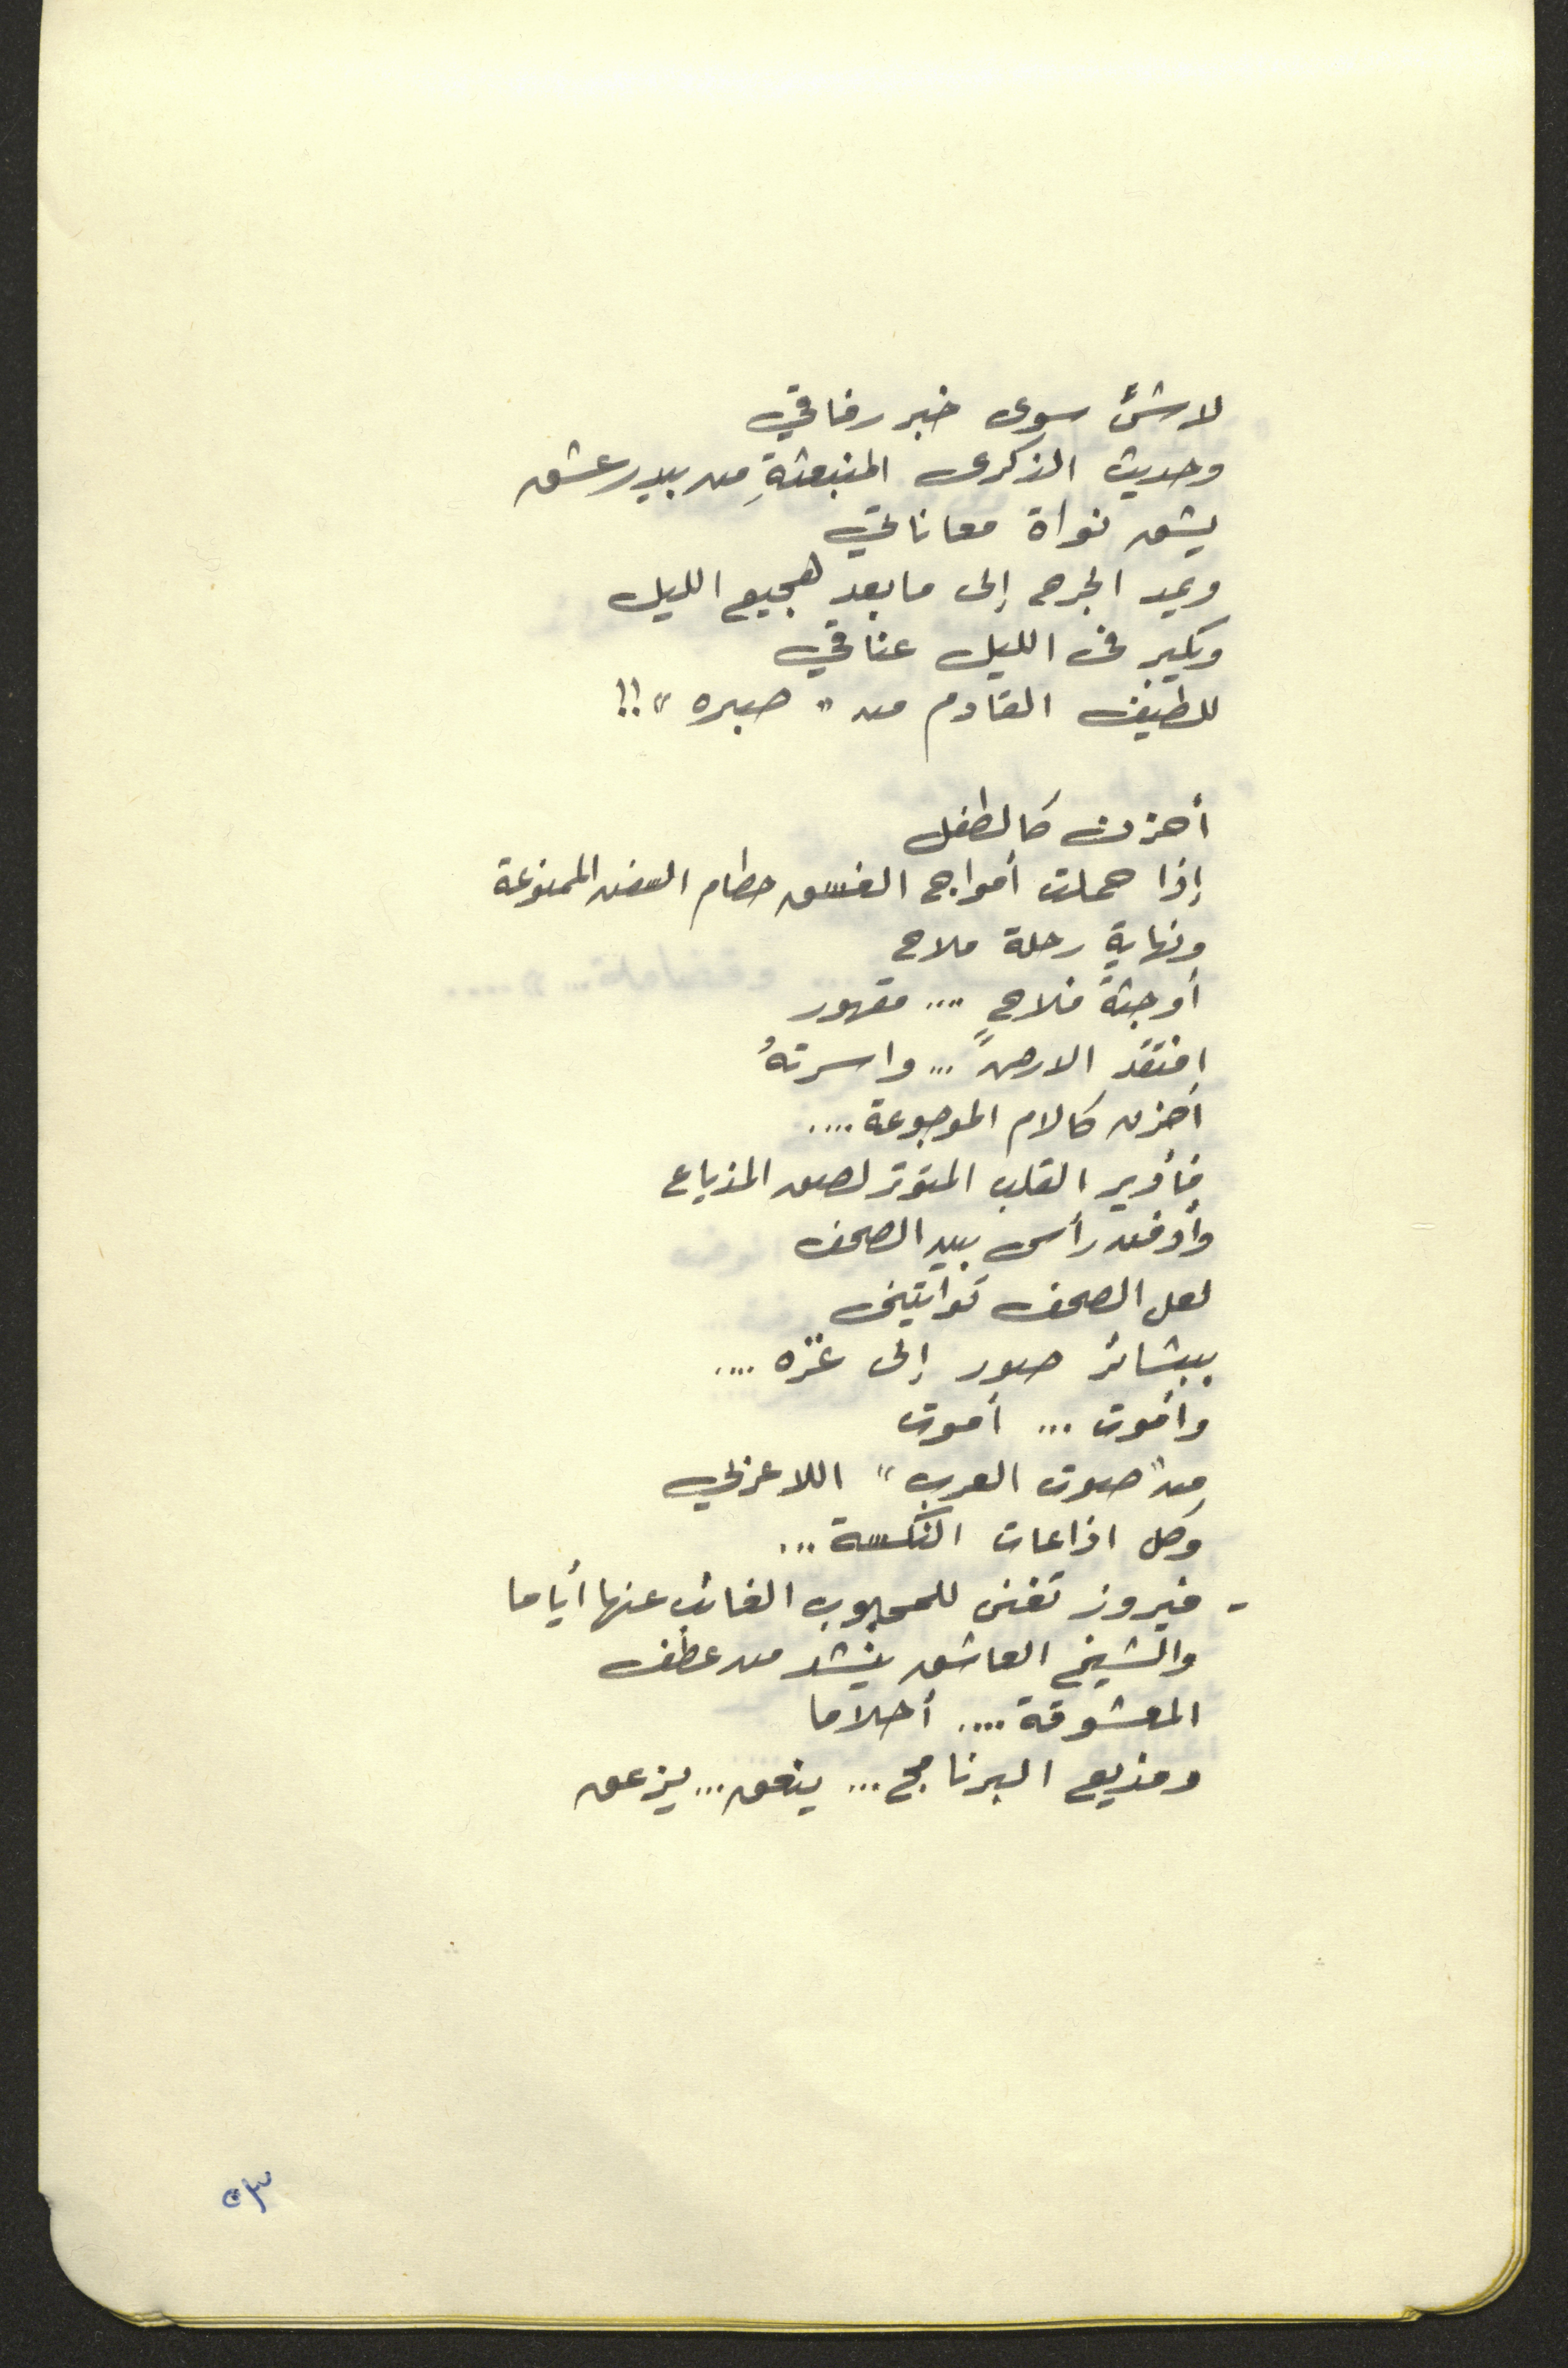 لا شئ سوى خبر رفاقي
وحديث الذكرى المنبعثةِ من بيدر عشق
يشق نواة معاناتي
ويمد الجرح إلى ما بعد هجيع الليل
ويكبر فى الليل عناقي
للطيف القادم من "صبره"!!
أحزن كالطفل
إذا حملت أمواج الغسق حطام السفن الممنوعة
ونهاية رحلة ملاح
أو جثة فلاحٍ .... مقهور
افتقد الارض ... واسرتهُ
أحزن كالام الموجوعة ....
فأدير القلب المتوتر لصق المذياع
وأدفن رأسى بين الصحف
لعل الصحف تواتينى
ببشائر صور إلى غزّه ....
وأموت ... أموت
من "صوت العرب" اللاعربي
وكل اذاعات النكسة ...
- فيروز تغنى للمحبوب الغائب عنها أياما
والشيخ العاشق ينشد من عطف
المعشوقة .... أحلاما
ومذيع البرنامج ... ينعق ... يزعق
٥٣